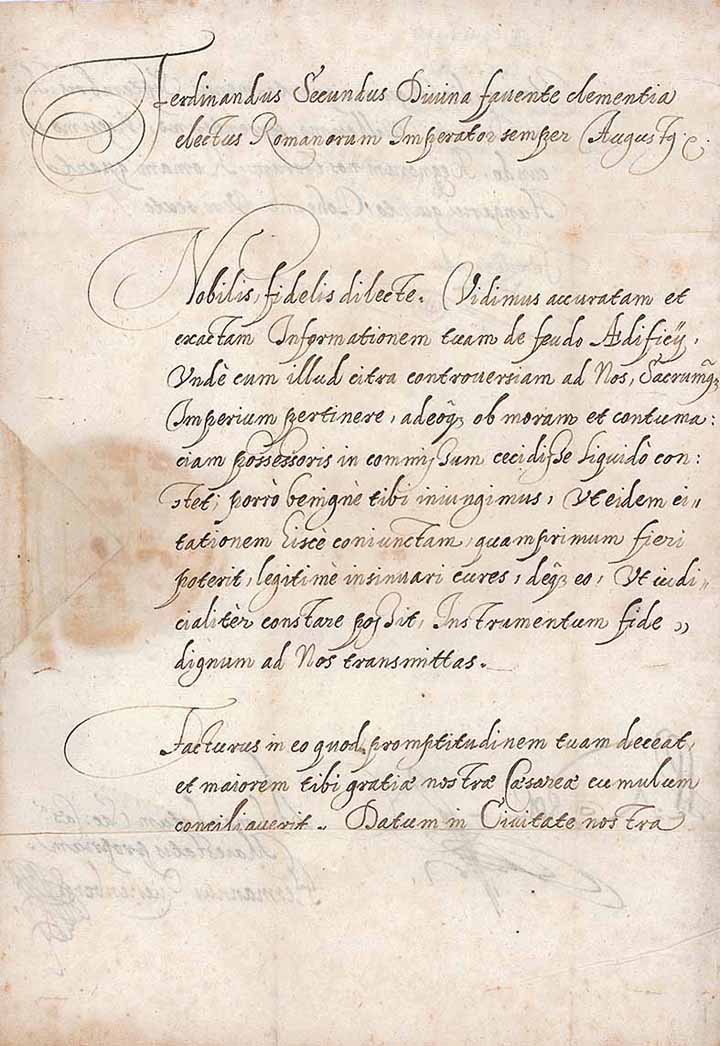 Ferdinandus Secundus Divina favente clementia
electus Romanorum Imperator semper Augustq. &.
Nobilis, fidelis dilecte. Vidimus accuratam et
exactam Informationem tuam de feudo Ædificij,
Vndè cum illud citra controversiam ad Nos, Sacrumq3
Imperium pertinere, adeoq3 ob moram et contuma:
ciam possessoris in commissum cecidisse liquidò con:
stet; porrò benignè tibi iniungimus, Vt eidem ci„
tationem hiscè coniunctam, quamprimum fieri
poterit, legitimè insinuari cures, deq3 eo, Vt iudi„
cialitèr constare possit, Instrumentum fide„
dignum ad Nos transmittas.
Facturus in eo quod promptitudinem tuam deceat,
et maiorem tibi gratiæ nostræ Cæsareæ cumulum
conciliaverit. Datum in Civitate nostra